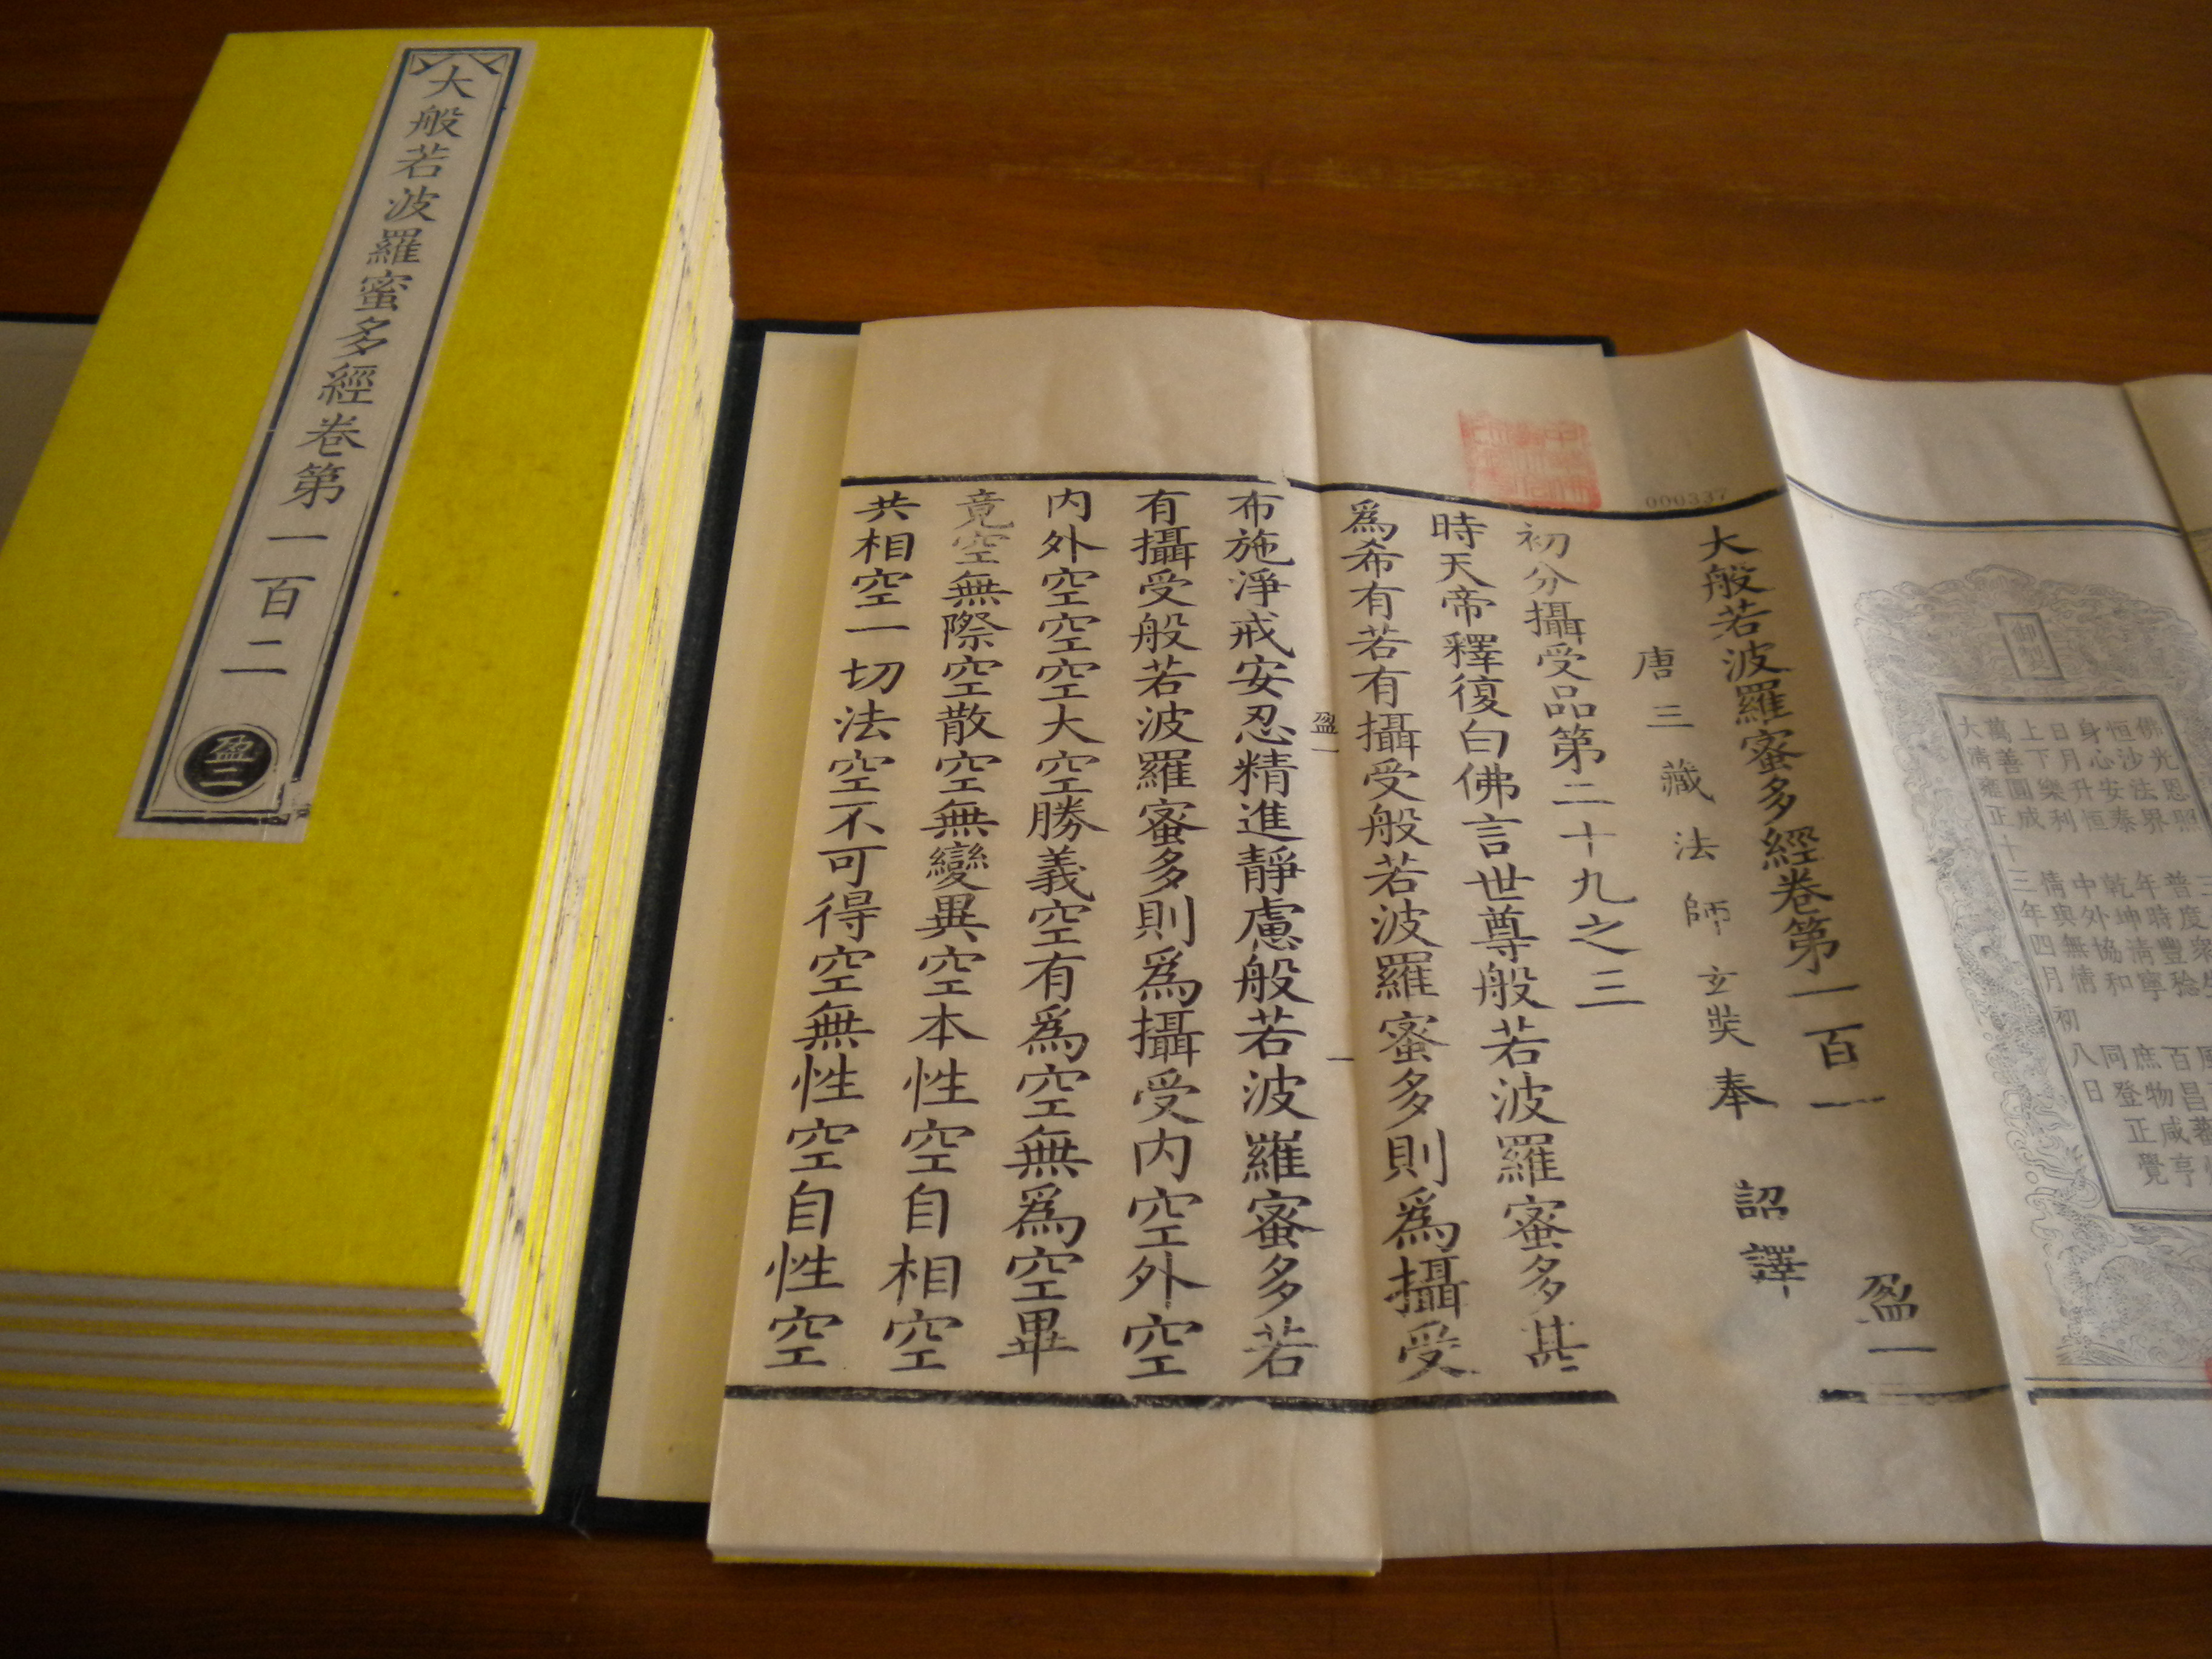 大般若波羅蜜多經卷第一百二
盈二
佛光恩照
恒沙法界
身心安泰
日月升恒
上下樂利
萬善圓成
普度衆生
年時豐稔
乾坤清寧
中外協和
情與無情
百昌蕃
庶物咸亨
同登正覺
大清雍正十三年四月初八日
大般若波羅蜜多經卷第一百一 盈一
唐三藏法師玄奘奉 詔譯
000337
初分攝受品第二十九之三
時天帝釋復白佛言世尊般若波羅蜜多甚
爲希有若有攝受般若波羅蜜多則爲攝受
盈一 一
布施淨戒安忍精進靜慮般若波羅蜜多若
有攝受般若波羅蜜多則爲攝受內空外空
內外空空空大空勝義空有爲空無爲空畢
竟空無際空散空無變異空本性空自相空
共相空一切法空不可得空無性空自性空